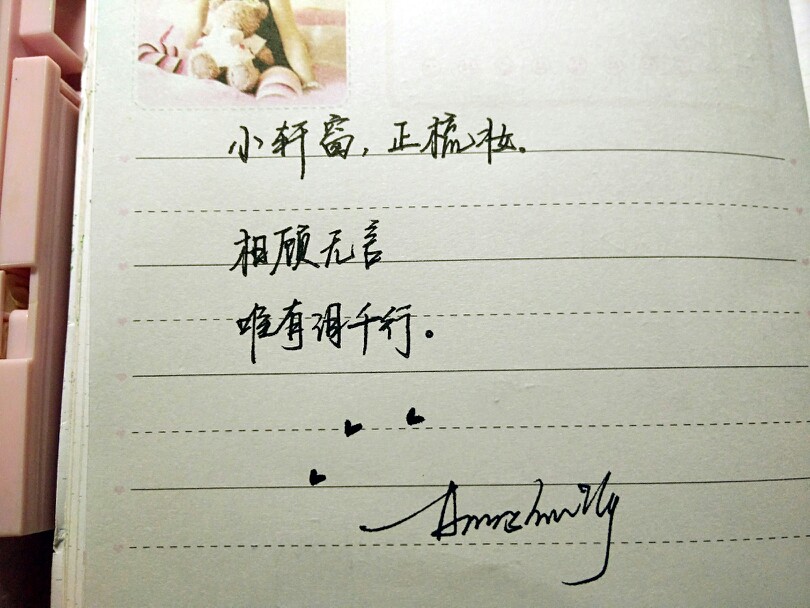 小轩窗，正梳妆.
相顾无言
唯有泪千行。